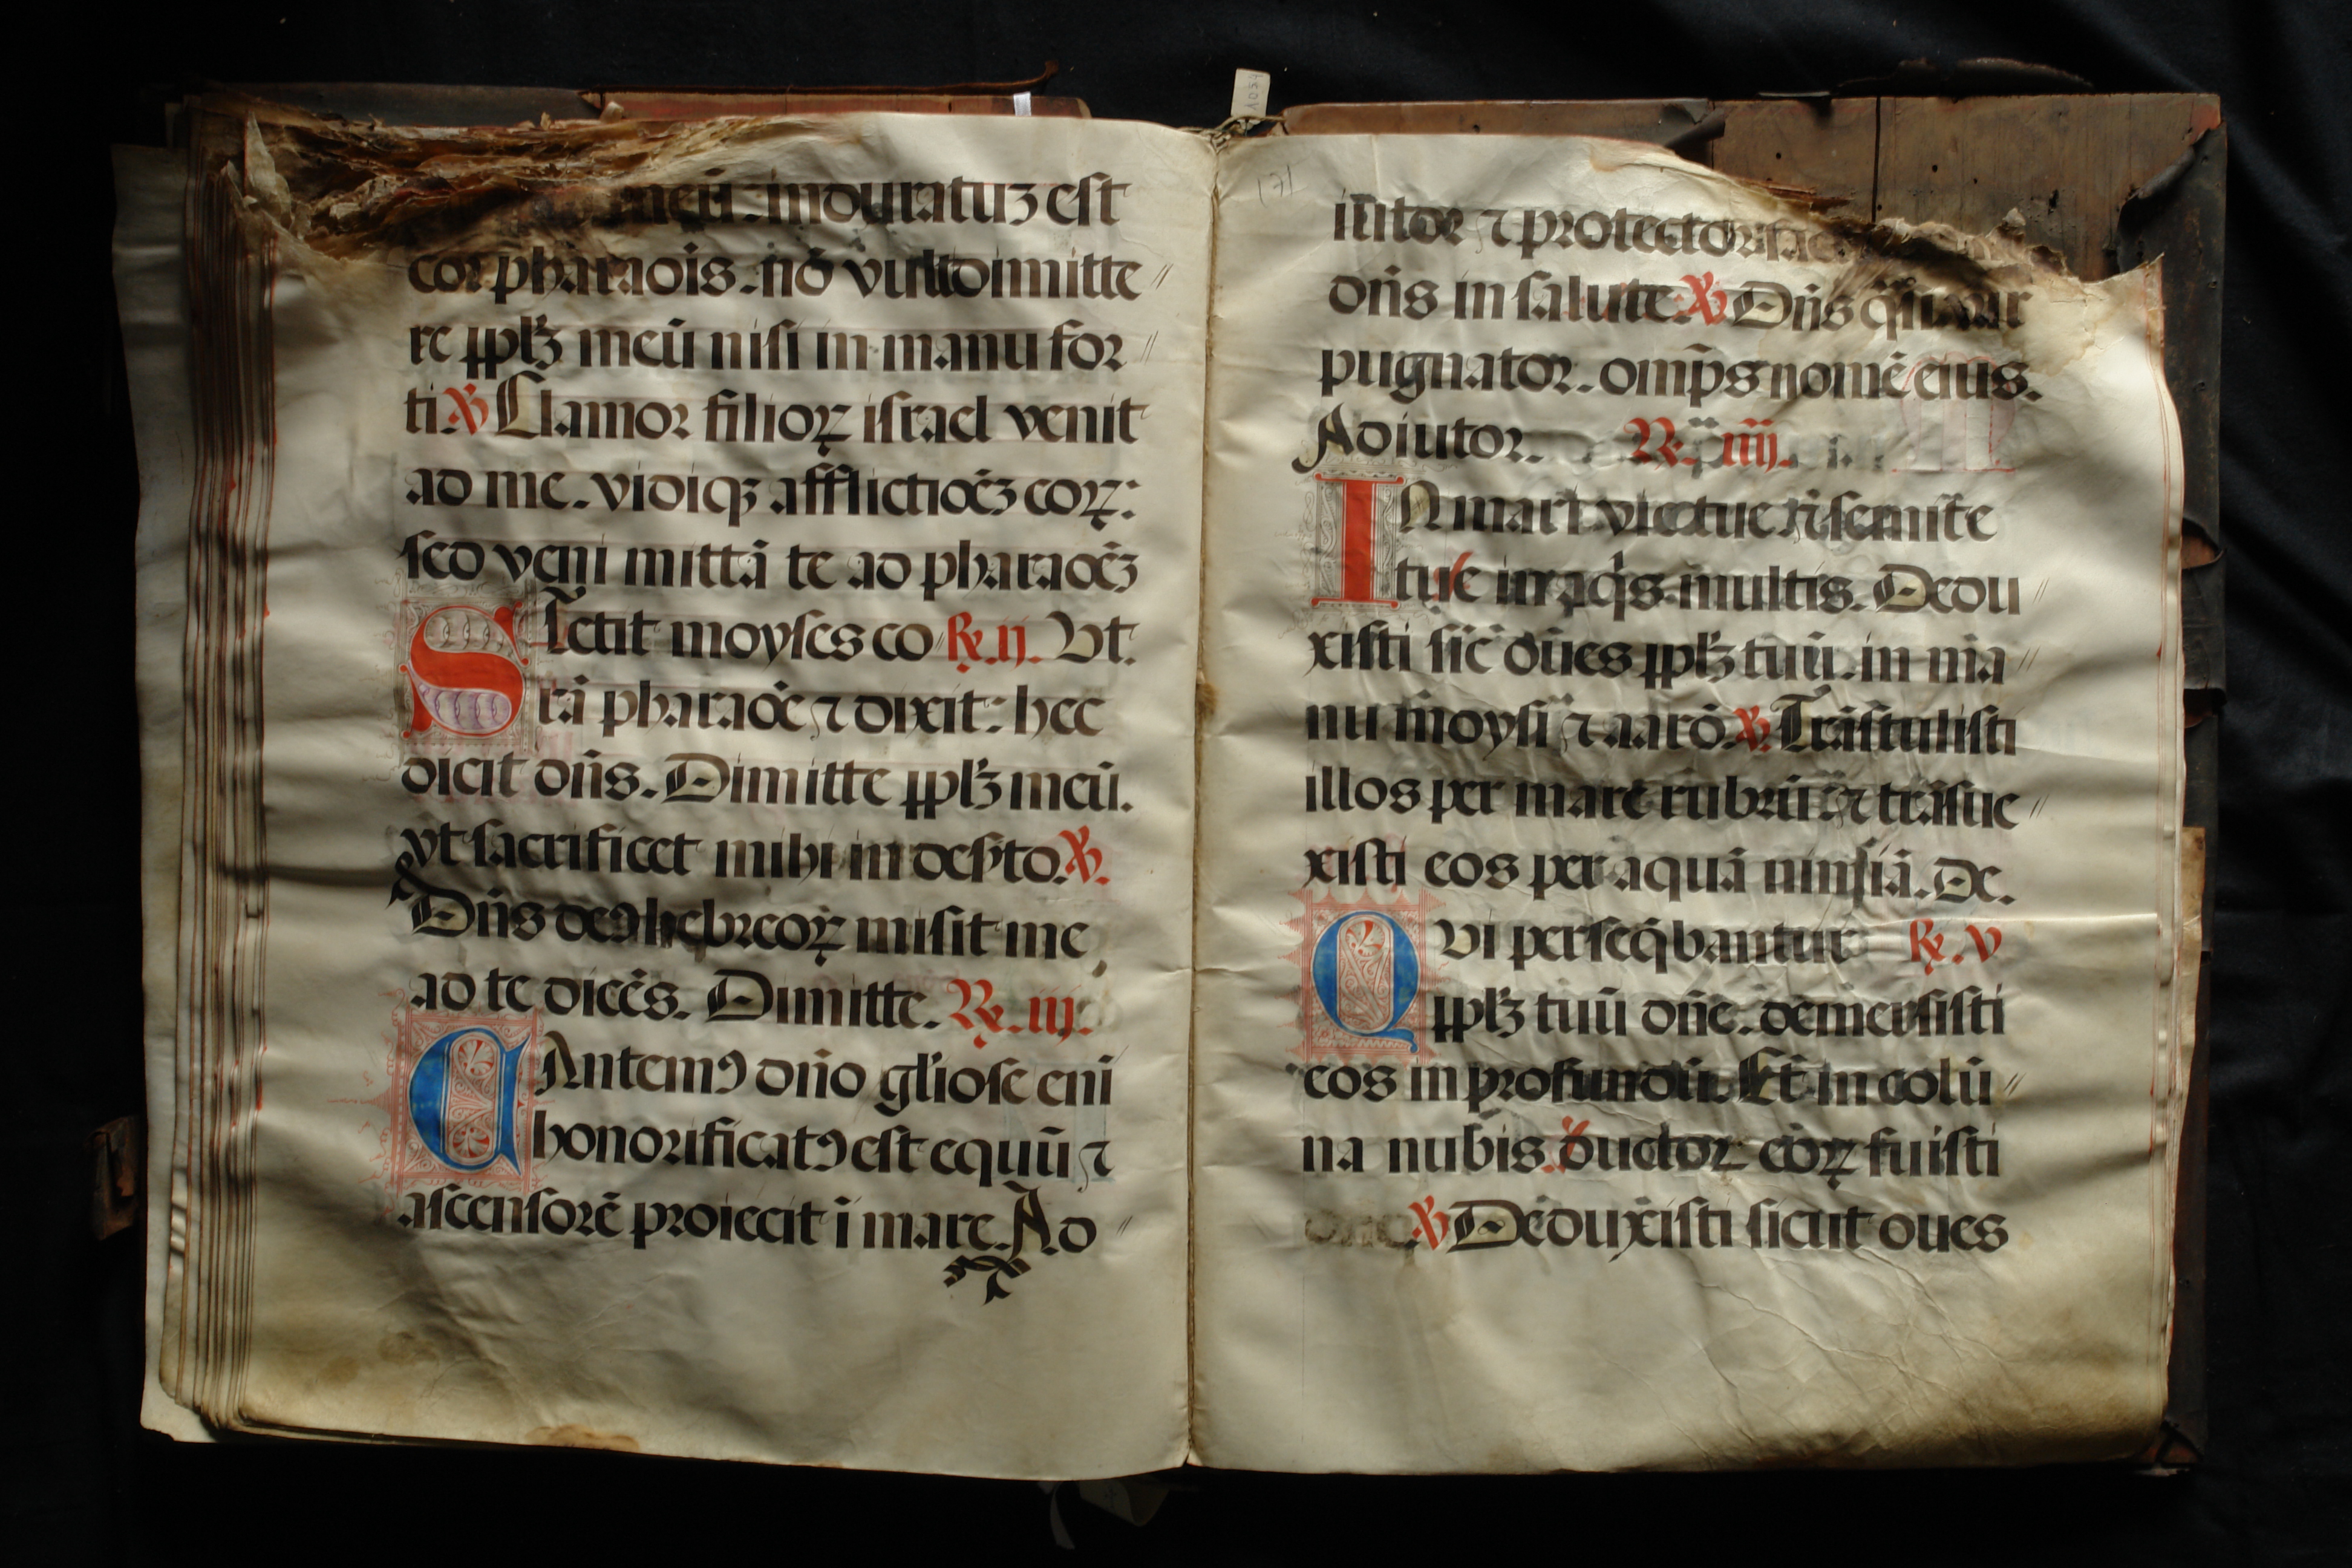 meū. induratuꝫ est
cor pharaois. nō vult dimitte
re pplꝫ meū nisi in manu for
ti. ℣ Clamor filioꝝ israel venit
ad me. vidiqꝫ afflictiōeꝫ eoꝝ:
sed veni mittā te ad pharaoēꝫ
Stetit moyses co ℟. ij. Vt.
rā pharaoē ⁊ dixit: hec
dicit dn̄s. Dimitte pplꝫ meū.
vt sacrificet mihi in des̄to. ℣.
Dn̄s deꝰ hebreoꝝ misit me
ad te dicēs. Dimitte. ℟. iij.
CAntemꝰ dn̄o gl̄iose eni
honorificatꝰ est equū ⁊
ascensorē proiecit ī mare. Ad
171
iutor ⁊ protector
dn̄s in salute. ℣ Dn̄s q̄si vir
pugnator. omp̄s nomē eius.
Adiutor. ℟. iiij.
IN mari vie tue ⁊ semite
tue in aq̄s multis. Dedu
xisti sic̄ oues pplꝫ tuū. in ma
nu moysi ⁊ aarō. ℣. Trāstulisti
illos per mare rubrū ⁊ trāsue
xisti eos per aquā nimiā. De.
QVi perseq̄bantur ℟. V
pplꝫ tuū dn̄e. demersisti
eos in profundū. Et in colū
na nubis ductor eoꝝ fuisti
dn̄e. ℣ Deduxisti sicut oues